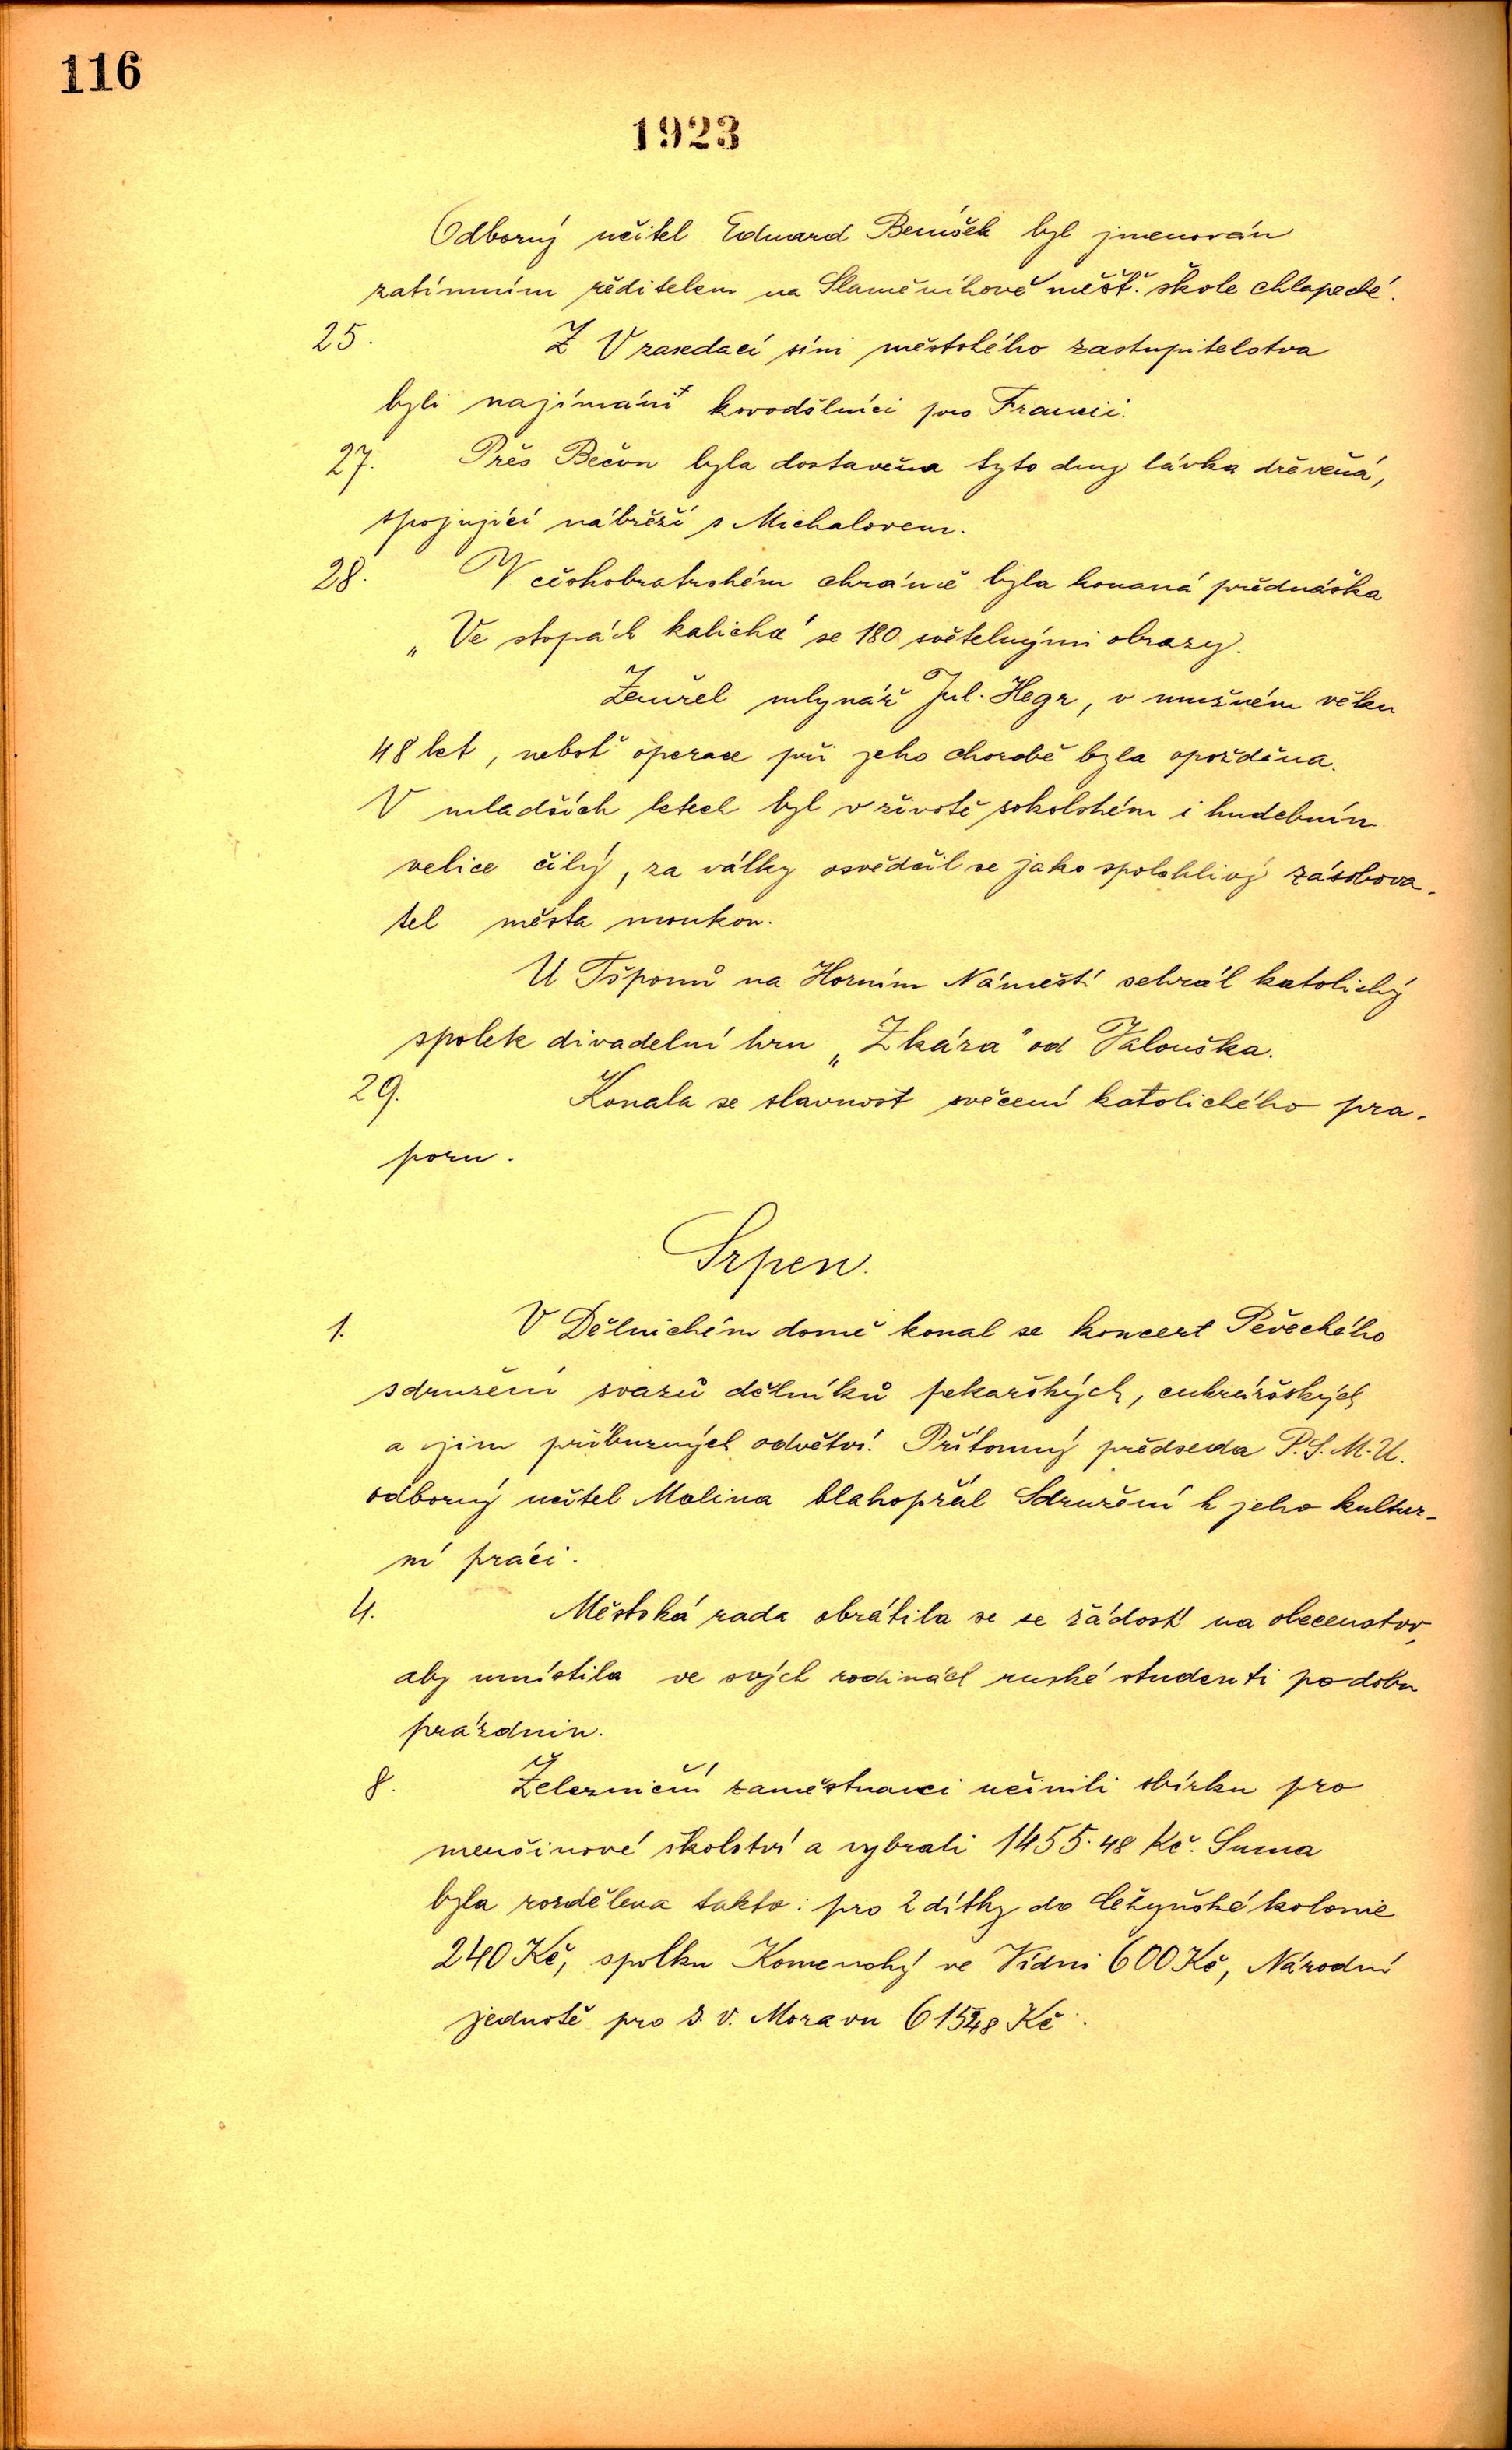 116
1923
Odborný učitel Eduard Beníšek byl jmenován
zatímním ředitelem na Slameníkově měšť. škole chlapecké.
25. Z V zasedací síni městského zastupitelstva
byli najímáni kovodělníci pro Francii.
27. Přes Bečvu byla dostavěna tyto dny lávka dřevěná,
spojující nábřeží s Michalovem.
28. V českobratrském chrámě byla konaná přednáška
„Ve stopách kalicha" se 180 světelnými obrazy.
Zemřel mlynář Jul. Hegr, v mužném věku
48 let, neboť operace při jeho chorobě byla opožděna.
V mladších letech byl v životě sokolském i hudebním
velice čilý, za války osvědčil se jako spolehlivý zásobova-
tel města moukou.
U Tšponů na Horním Náměstí sehrál katolický
spolek divadelní hru „Zkáza" od Valouška.
29. Konala se slavnost svěcení katolického pra-
poru.
Srpen.
1. V Dělnickém domě konal se koncert Pěveckého
sdružení svazů dělníků pekařských, cukrářských
a jim příbuzných odvětví. Přítomný předseda P.S.M.U.
odborný učitel Malina blahopřál Sdružení k jeho kultur-
ní práci.
4. Městská rada obrátila se se žádostí na obecenstvo,
aby umístila ve svých rodinách ruské studenti po dobu
prázdnin.
8. Železniční zaměstnanci učinili sbírku pro
menšinové školství a vybrali 1455.48 Kč. Suma
byla rozdělena takto: pro 2 dítky do kolonie
240 Kč, spolku Komenský ve Vídni 600 Kč, Národní
jednotě pro s. v. Moravu 615.48 Kč.